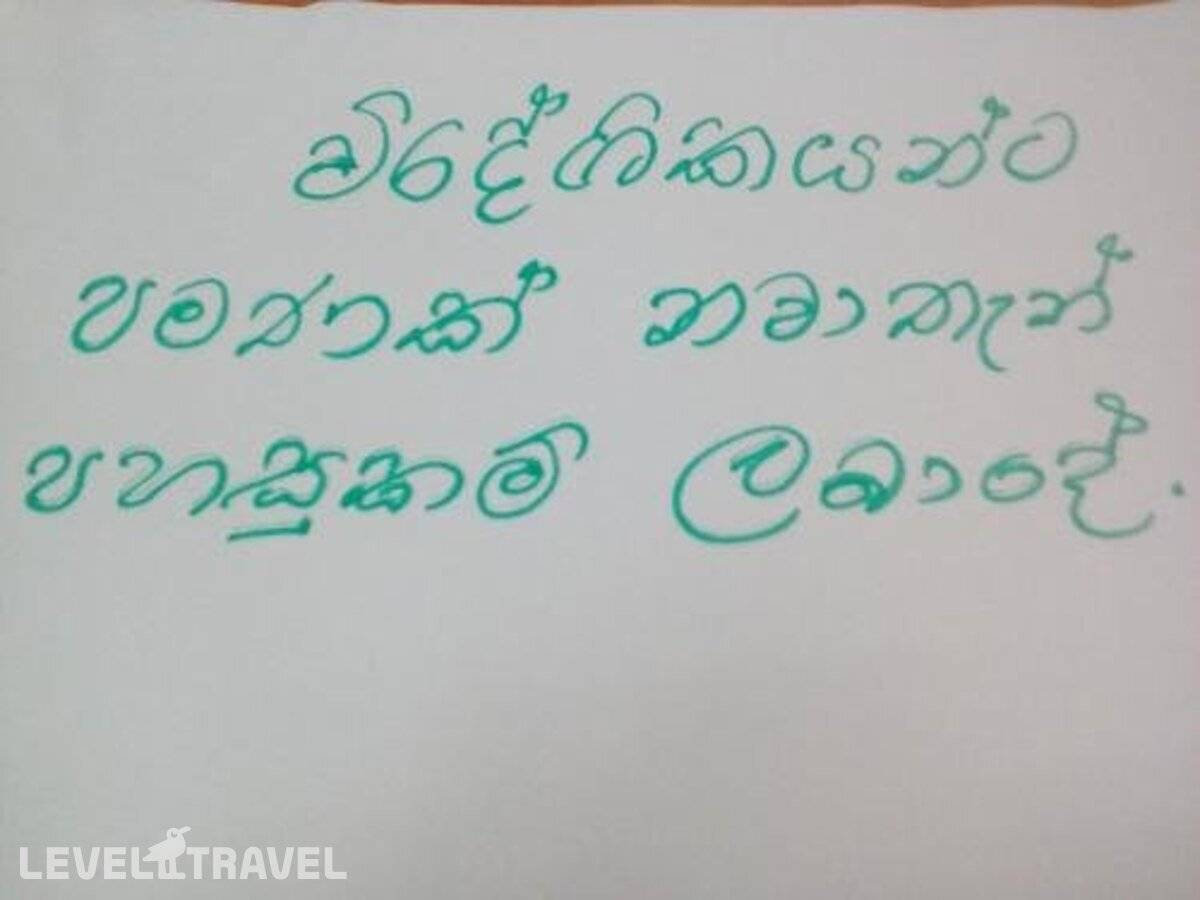 විදේශිකයන්ට
පමණක් නවාතැන්
පහසුකම් ලබාදේ.
LEVEL TRAVEL